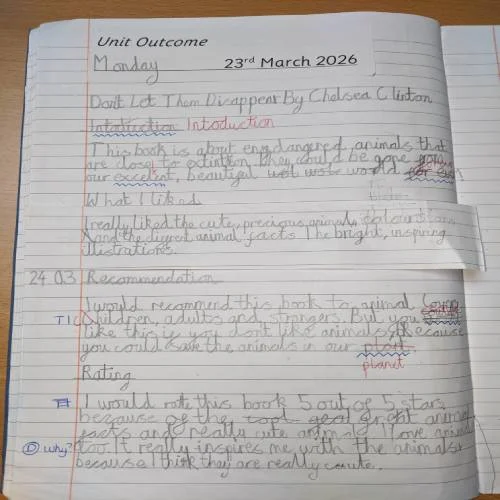 Unit Outcome
Monday 23rd March 2026
Dont Let Them Disappear By Chelsea Clinton
Intoduction Intoduction
This book is about endangered animals that
are close to extintion. they could be gone
our excelent, beautiful world
What I liked
I really liked the cute, precious animals, colours
and the diffrent animal facts The bright, inspiring
illistrations.
24.03 Recommendation
I would recommend this book to animal loving
children, adults and strangers. But you
like this is you dont like animals because
you could save the animals in our plant
planet
Rating
I would rate this book 5 out of 5 stars
because of the great animal
facts and really cute animals I love
why? too. It really inspires me with the animals
because I think they are really cute.